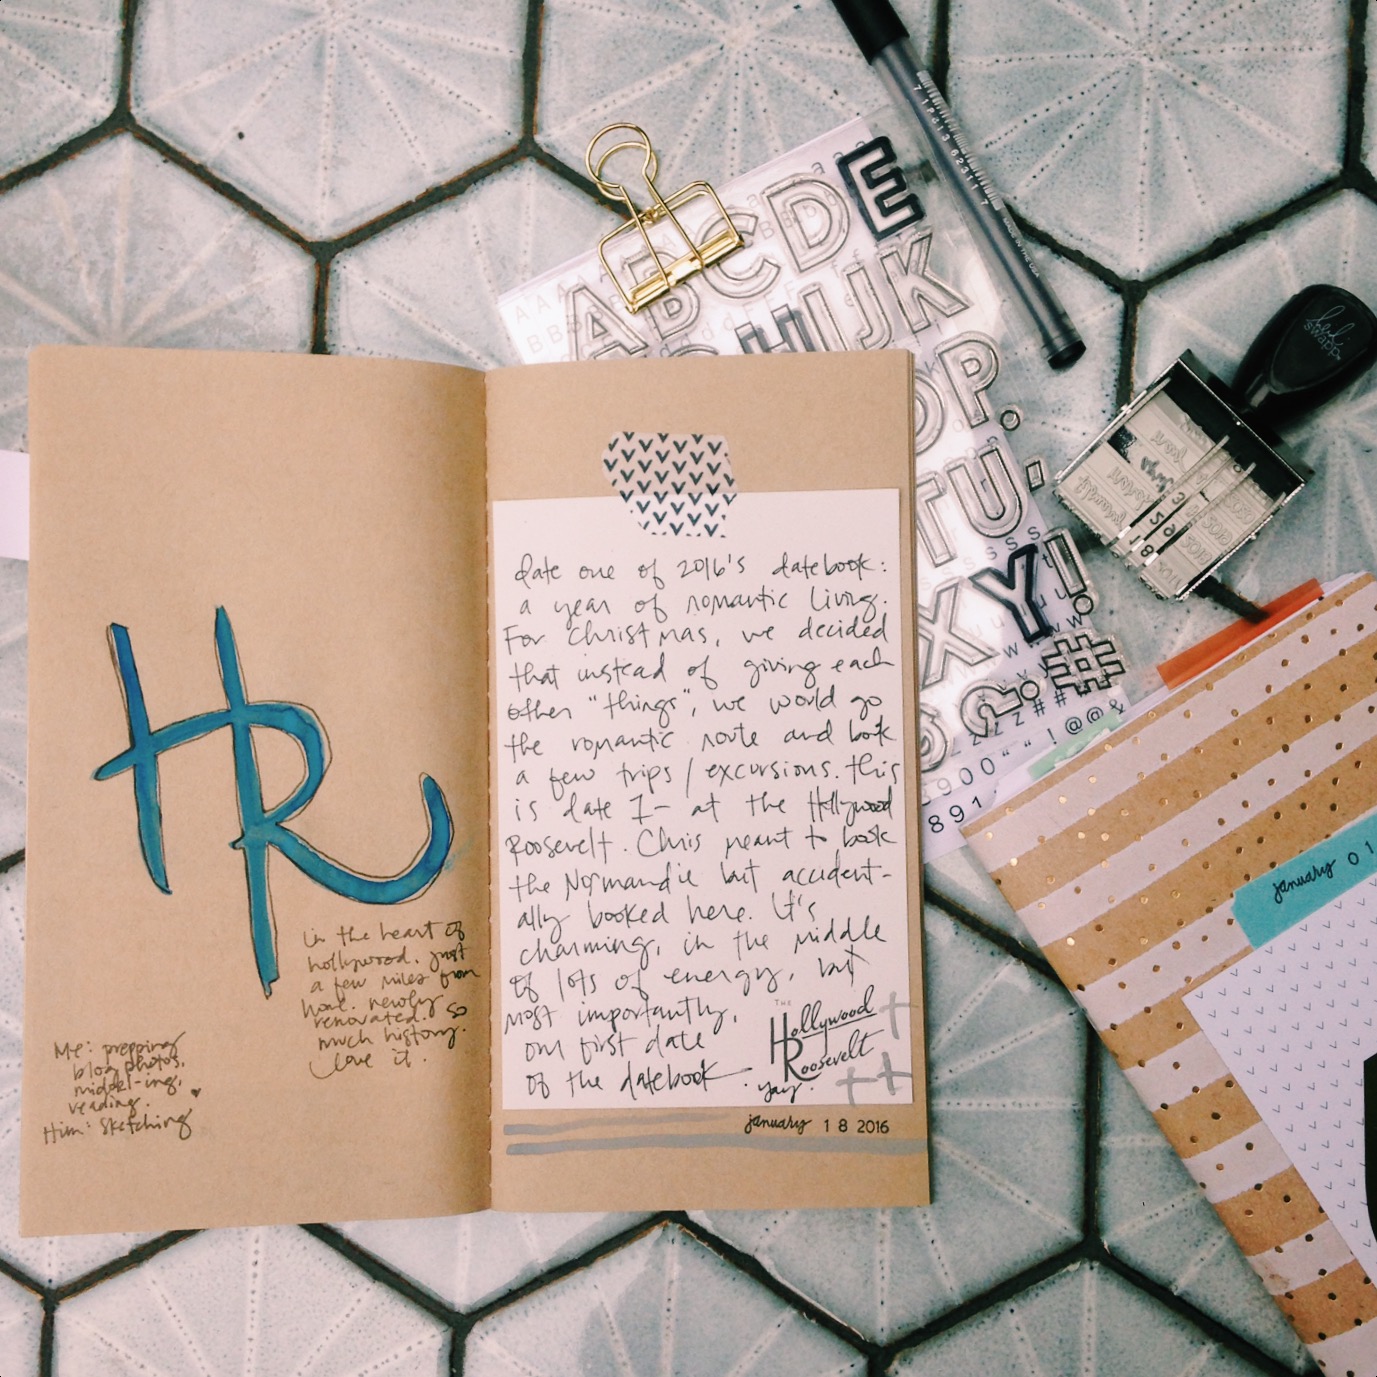 HR
in the heart of
hollywood. just
a few miles from
home. newly
renovated. so
much history.
love it.
Me: prepping
blog photos,
reading.
Him: sketching
date one of 2016's datebook:
a year of romantic living.
For Christmas, we decided
that instead of giving each
other "things", we would go
the romantic route and book
a few trips / excursions. this
is date 1 - at the Hollywood
Roosevelt. Chris meant to book
the Normandie but accident-
ally booked here. It's
charming, in the middle
of lots of energy, but
most importantly,
our first date
of the datebook.
THE
Hollywood
Roosevelt
yay.
january 18 2016
ABCDE
HIJK
OP.
TU,
XY!
?#
z z z # # #
900""!@@&
891
7 18313 62311 7
MADE IN THE USA
heidi
swapp
january 01